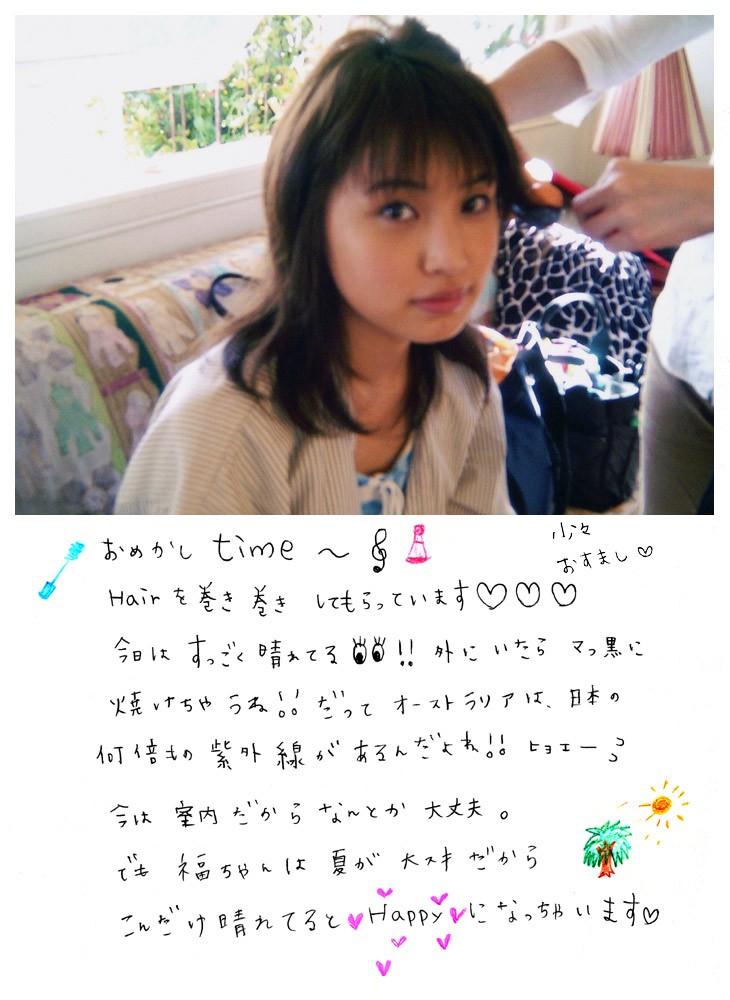 おめかし time 〜
少々
おすまし♡
Hairを巻き巻きしてもらっています♡♡♡
今日はすっごく晴れてる!! 外にいたらマっ黒に
焼けちゃうね!! だってオーストラリアは、日本の
何倍もの紫外線があるんだよね!! ヒョエーっ
今は室内だからなんとか大丈夫。
でも福ちゃんは夏が大スキだから
こんだけ晴れてると♥Happy♥になっちゃいます♡